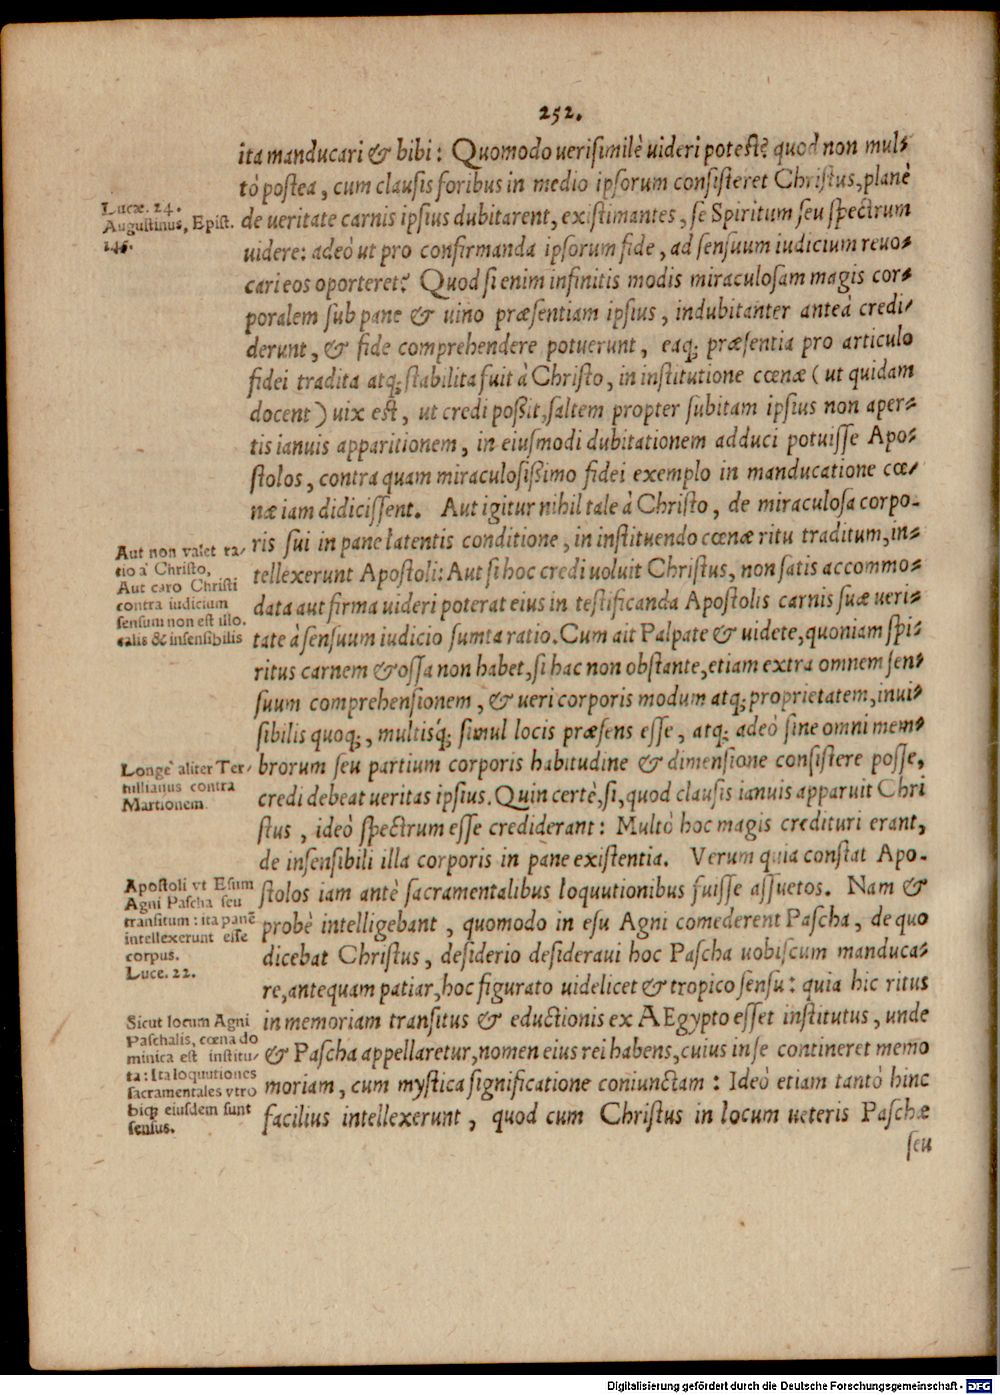 252.
ita manducari & bibi: Quomodo uerisimilè uideri potest? quod non mul⸗
tò postea, cum clausis foribus in medio ipsorum consisteret Christus, planè
de ueritate carnis ipsius dubitarent, existimantes, se Spiritum seu spectrum
uidere: adeò ut pro confirmanda ipsorum fide, ad sensuum iudicium reuo⸗
cari eos oporteret? Quod si enim infinitis modis miraculosam magis cor⸗
poralem sub pane & uino præsentiam ipsius, indubitanter anteà credi⸗
derunt, & fide comprehendere potuerunt, eaq; præsentia pro articulo
fidei tradita atq; stabilita fuit à Christo, in institutione cœnæ (ut quidam
docent) uix est, ut credi poßit, saltem propter subitam ipsius non aper⸗
tis ianuis apparitionem, in eiusmodi dubitationem adduci potuisse Apo⸗
stolos, contra quam miraculosißimo fidei exemplo in manducatione cœ⸗
næ iam didicissent. Aut igitur nihil tale à Christo, de miraculosa corpo-
ris sui in pane latentis conditione, in instituendo cœnæ ritu traditum, in⸗
tellexerunt Apostoli: Aut si hoc credi uoluit Christus, non satis accommo⸗
data aut firma uideri poterat eius in testificanda Apostolis carnis suæ ueri⸗
tate à sensuum iudicio sumta ratio. Cum ait Palpate & uidete, quoniam spi⸗
ritus carnem & ossa non habet, si hac non obstante, etiam extra omnem sen⸗
suum comprehensionem, & ueri corporis modum atq; proprietatem, inui⸗
sibilis quoq;, multisq́; simul locis præsens esse, atq; adeò sine omni mem⸗
brorum seu partium corporis habitudine & dimensione consistere posse,
credi debeat ueritas ipsius. Quin certè, si, quod clausis ianuis apparuit Chri
stus, ideò spectrum esse crediderant: Multò hoc magis credituri erant,
de insensibili illa corporis in pane existentia. Verum quia constat Apo-
stolos iam antè sacramentalibus loquutionibus fuisse assuetos. Nam &
probè intelligebant, quomodo in esu Agni comederent Pascha, de quo
dicebat Christus, desiderio desideraui hoc Pascha uobiscum manduca⸗
re, antequam patiar, hoc figurato uidelicet & tropico sensu: quia hic ritus
in memoriam transitus & eductionis ex AEgypto esset institutus, unde
& Pascha appellaretur, nomen eius rei habens, cuius in se contineret memo
moriam, cum mystica significatione coniunctam: Ideò etiam tantò hinc
facilius intellexerunt, quod cum Christus in locum ueteris Paschæ
seu
Lucæ. 24.
Augustinus, Epist.
146.
Aut non valet ra⸗
tio à Christo,
Aut caro Christi
contra iudicium
sensum non est illo.
calis & insensibilis
Longè aliter Ter⸗
tullianus contra
Martionem
Apostoli vt Esum
Agni Pascha seu
transitum: ita panē
intellexerunt esse
corpus.
Luce. 22.
Sicut locum Agni
Paschalis, cœna do
minica est institu⸗
ta: Ita loquutiones
sacramentales vtro
biq; eiusdem sunt
sensus.
Digitalisierung gefördert durch die Deutsche Forschungsgemeinschaft - DFG